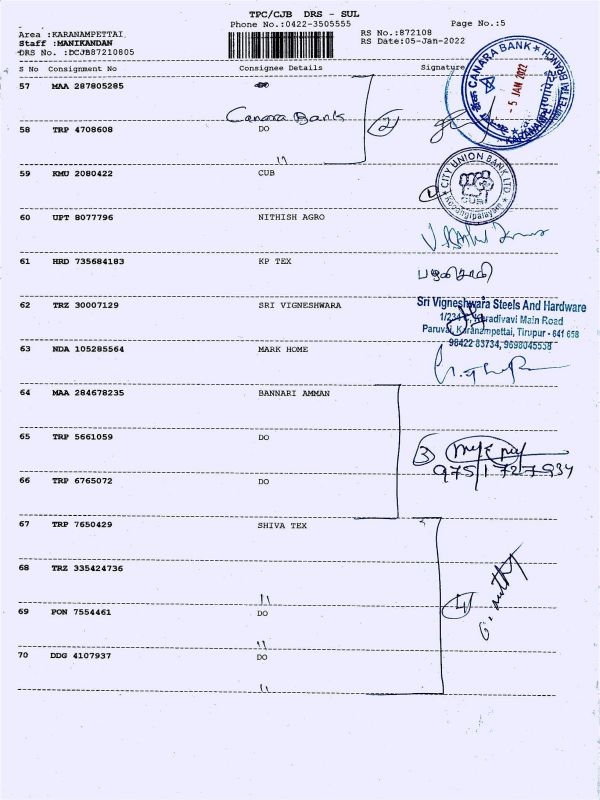 TPC/CJB DRS - SUL
Phone No.:0422-3505555 Page No.:5
Area :KARANAMPETTAI
Staff :MANIKANDAN
DRS No. :DCJB87210805
RS No.:872108
RS Date:05-Jan-2022
S No Consignment No Consignee Details Signature
57 MAA 287805285
Canara Bank
58 TRP 4708608 DO
(2)
CANARA BANK
- 5 JAN 2022
59 KMU 2080422 CUB
CITY UNION BANK LTD.
CUB
60 UPT 8077796 NITHISH AGRO
61 HRD 735684183 KP TEX
62 TRZ 30007129 SRI VIGNESHWARA
Sri Vigneshwara Steels And Hardware
Karadivavi Main Road
Paruvai, Karanampettai, Tirupur - 641 658
98422 83734, 9698045538
63 NDA 105285564 MARK HOME
64 MAA 284678235 BANNARI AMMAN
65 TRP 5661059 DO
(3)
9751727934
66 TRP 6765072 DO
67 TRP 7650429 SHIVA TEX
68 TRZ 335424736
"
(4)
69 PON 7554461 DO
"
70 DDG 4107937 DO
"